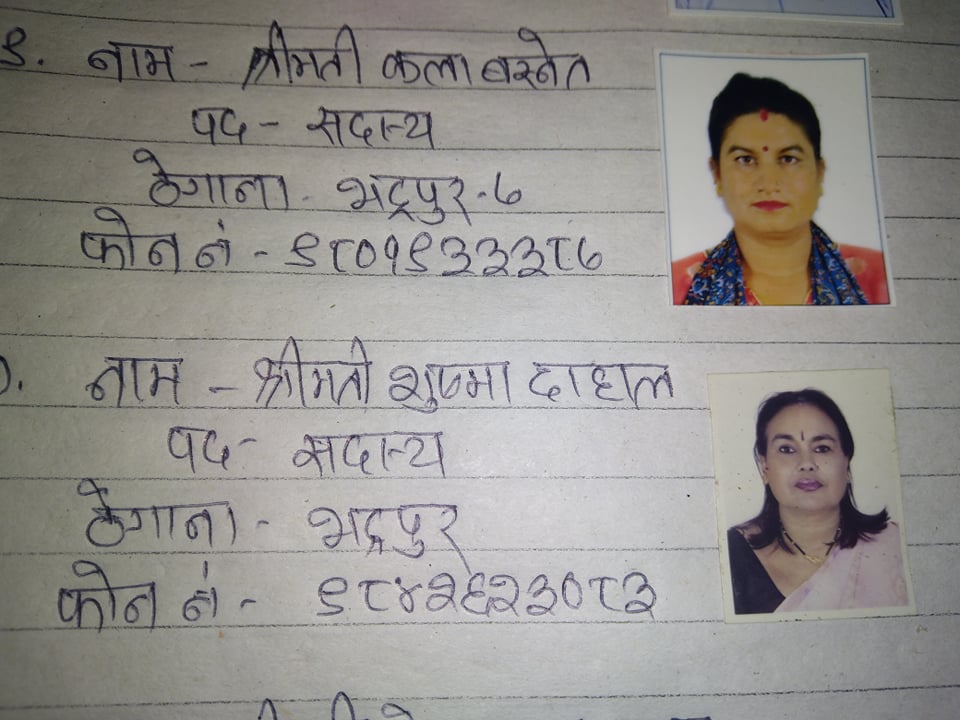 ९. नाम - श्रीमती कला बस्नेत
पद - सदास्य
ठेगाना - भद्रपुर - ७
फोन नं - ९८०१९३३३८७
नाम - श्रीमती शुष्मा दाहाल
पद - सदास्य
ठेगाना - भद्रपुर
फोन नं - ९८४२६२३०८३